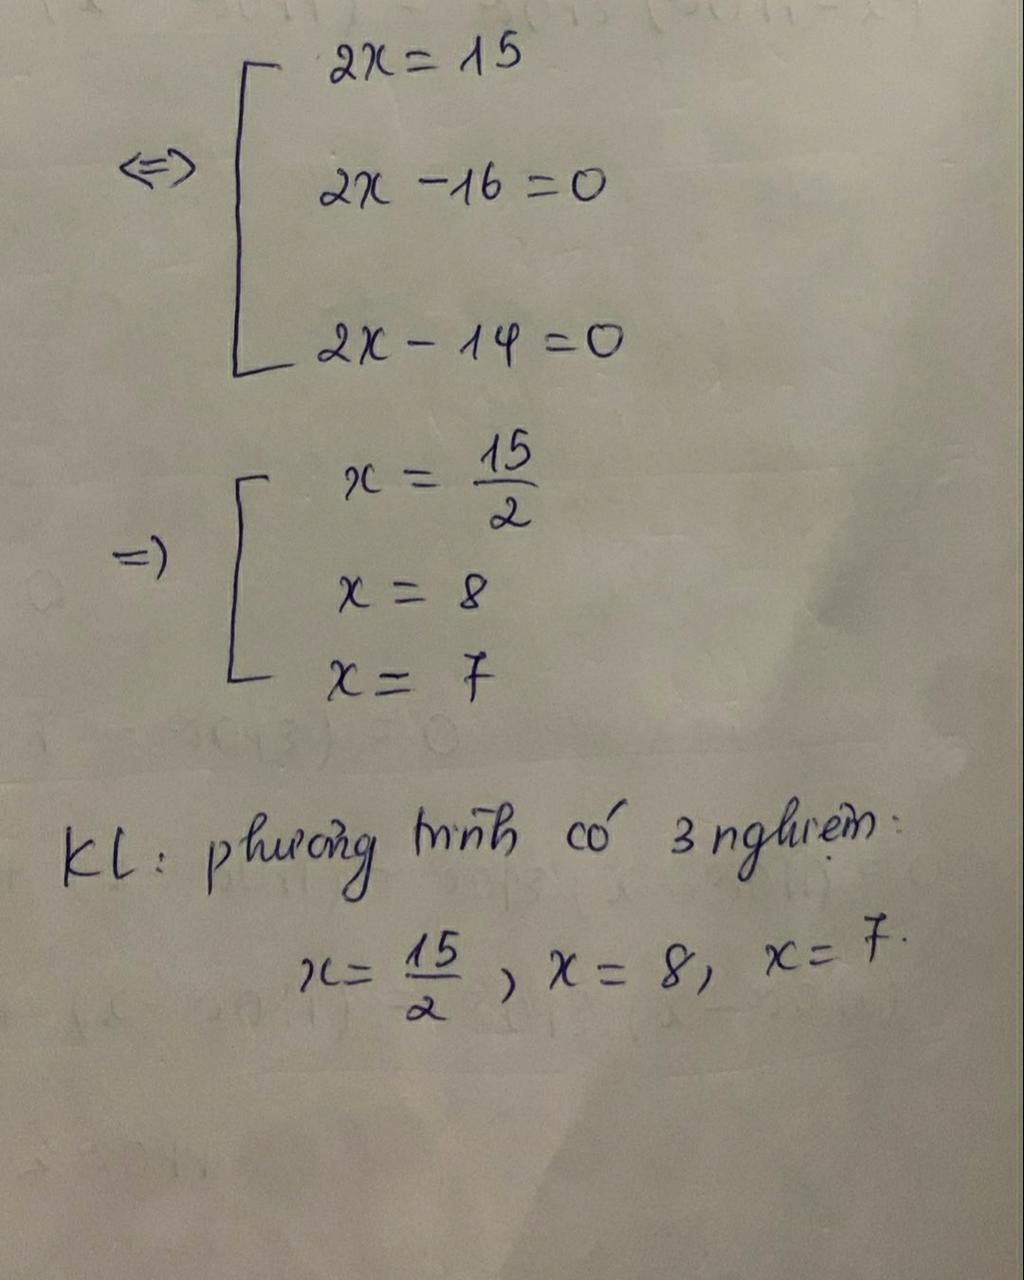 2x = 15
<=> 2x - 16 = 0
2x - 14 = 0
x = 15/2
=> x = 8
x = 7
KL: phương trình có 3 nghiệm:
x = 15/2, x = 8, x = 7.